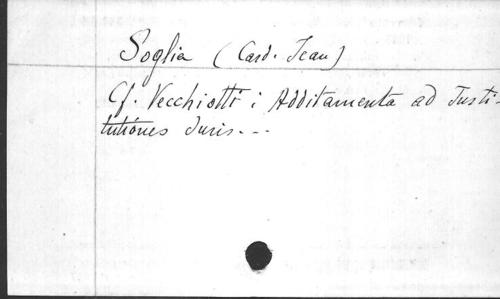 Soglia (Card. Jean)
Cf. Vecchiotti : Additamenta ad Insti-
tutiones Juris...